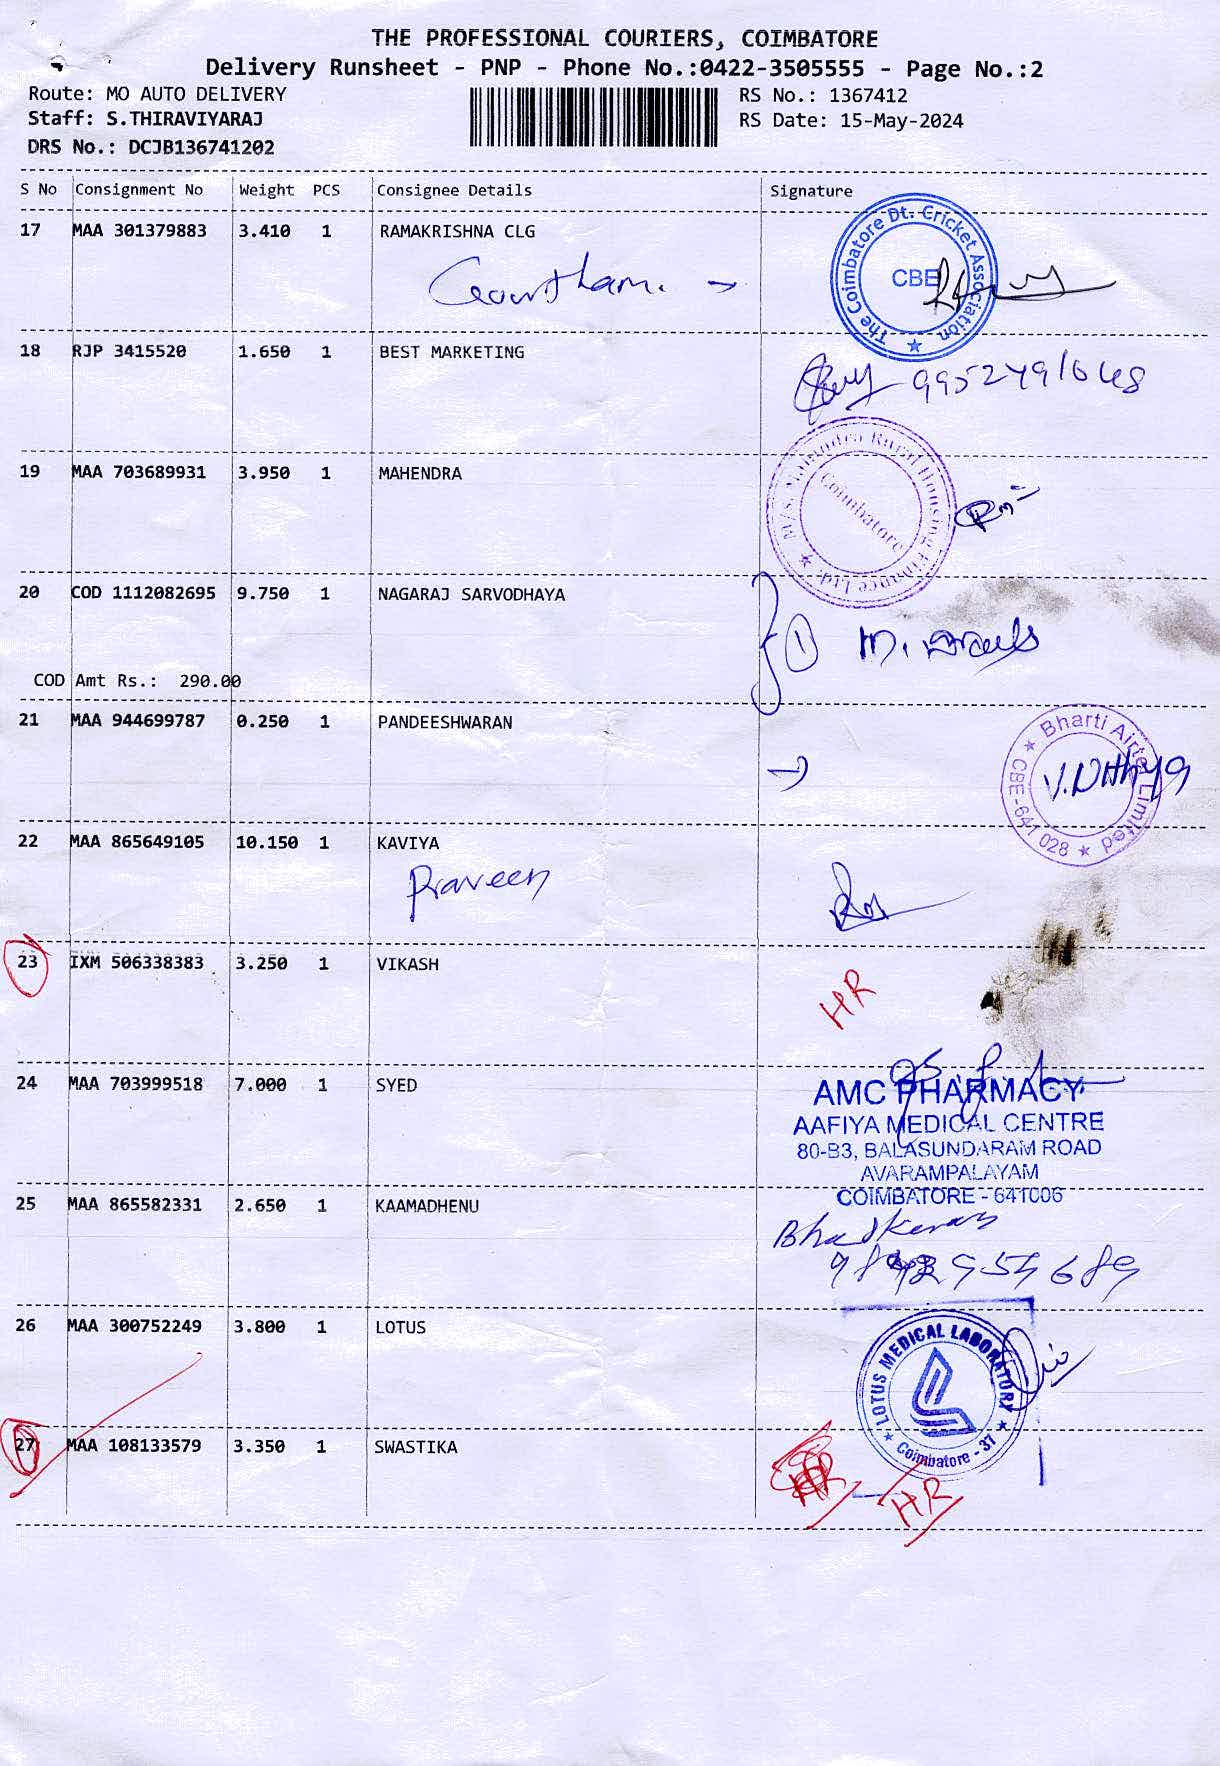 THE PROFESSIONAL COURIERS, COIMBATORE
Delivery Runsheet - PNP - Phone No.:0422-3505555 - Page No.:2
Route: MO AUTO DELIVERY
RS No.: 1367412
Staff: S.THIRAVIYARAJ
RS Date: 15-May-2024
DRS No.: DCJB136741202
S No Consignment No Weight PCS Consignee Details Signature
17 MAA 301379883 3.410 1 RAMAKRISHNA CLG
Gowtham.
The Coimbatore Dt. Cricket Association
CBE
18 RJP 3415520 1.650 1 BEST MARKETING
9952491048
19 MAA 703689931 3.950 1 MAHENDRA
M/s. Mahindra Rural Housing Finance Ltd
Coimbatore
20 COD 1112082695 9.750 1 NAGARAJ SARVODHAYA
1 M.
COD Amt Rs.: 290.00
21 MAA 944699787 0.250 1 PANDEESHWARAN
Bharti Airtel Limited
CBE-641 028
V.Nithya
22 MAA 865649105 10.150 1 KAVIYA
Praveen
23 IXM 506338383 3.250 1 VIKASH
HR
24 MAA 703999518 7.000 1 SYED
AMC PHARMACY
AAFIYA MEDICAL CENTRE
80-B3, BALASUNDARAM ROAD
AVARAMPALAYAM
COIMBATORE - 641006
25 MAA 865582331 2.650 1 KAAMADHENU
Bhaskaran
26 MAA 300752249 3.800 1 LOTUS
LOTUS MEDICAL LABORATORY
Coimbatore - 37
27 MAA 108133579 3.350 1 SWASTIKA
HR HR